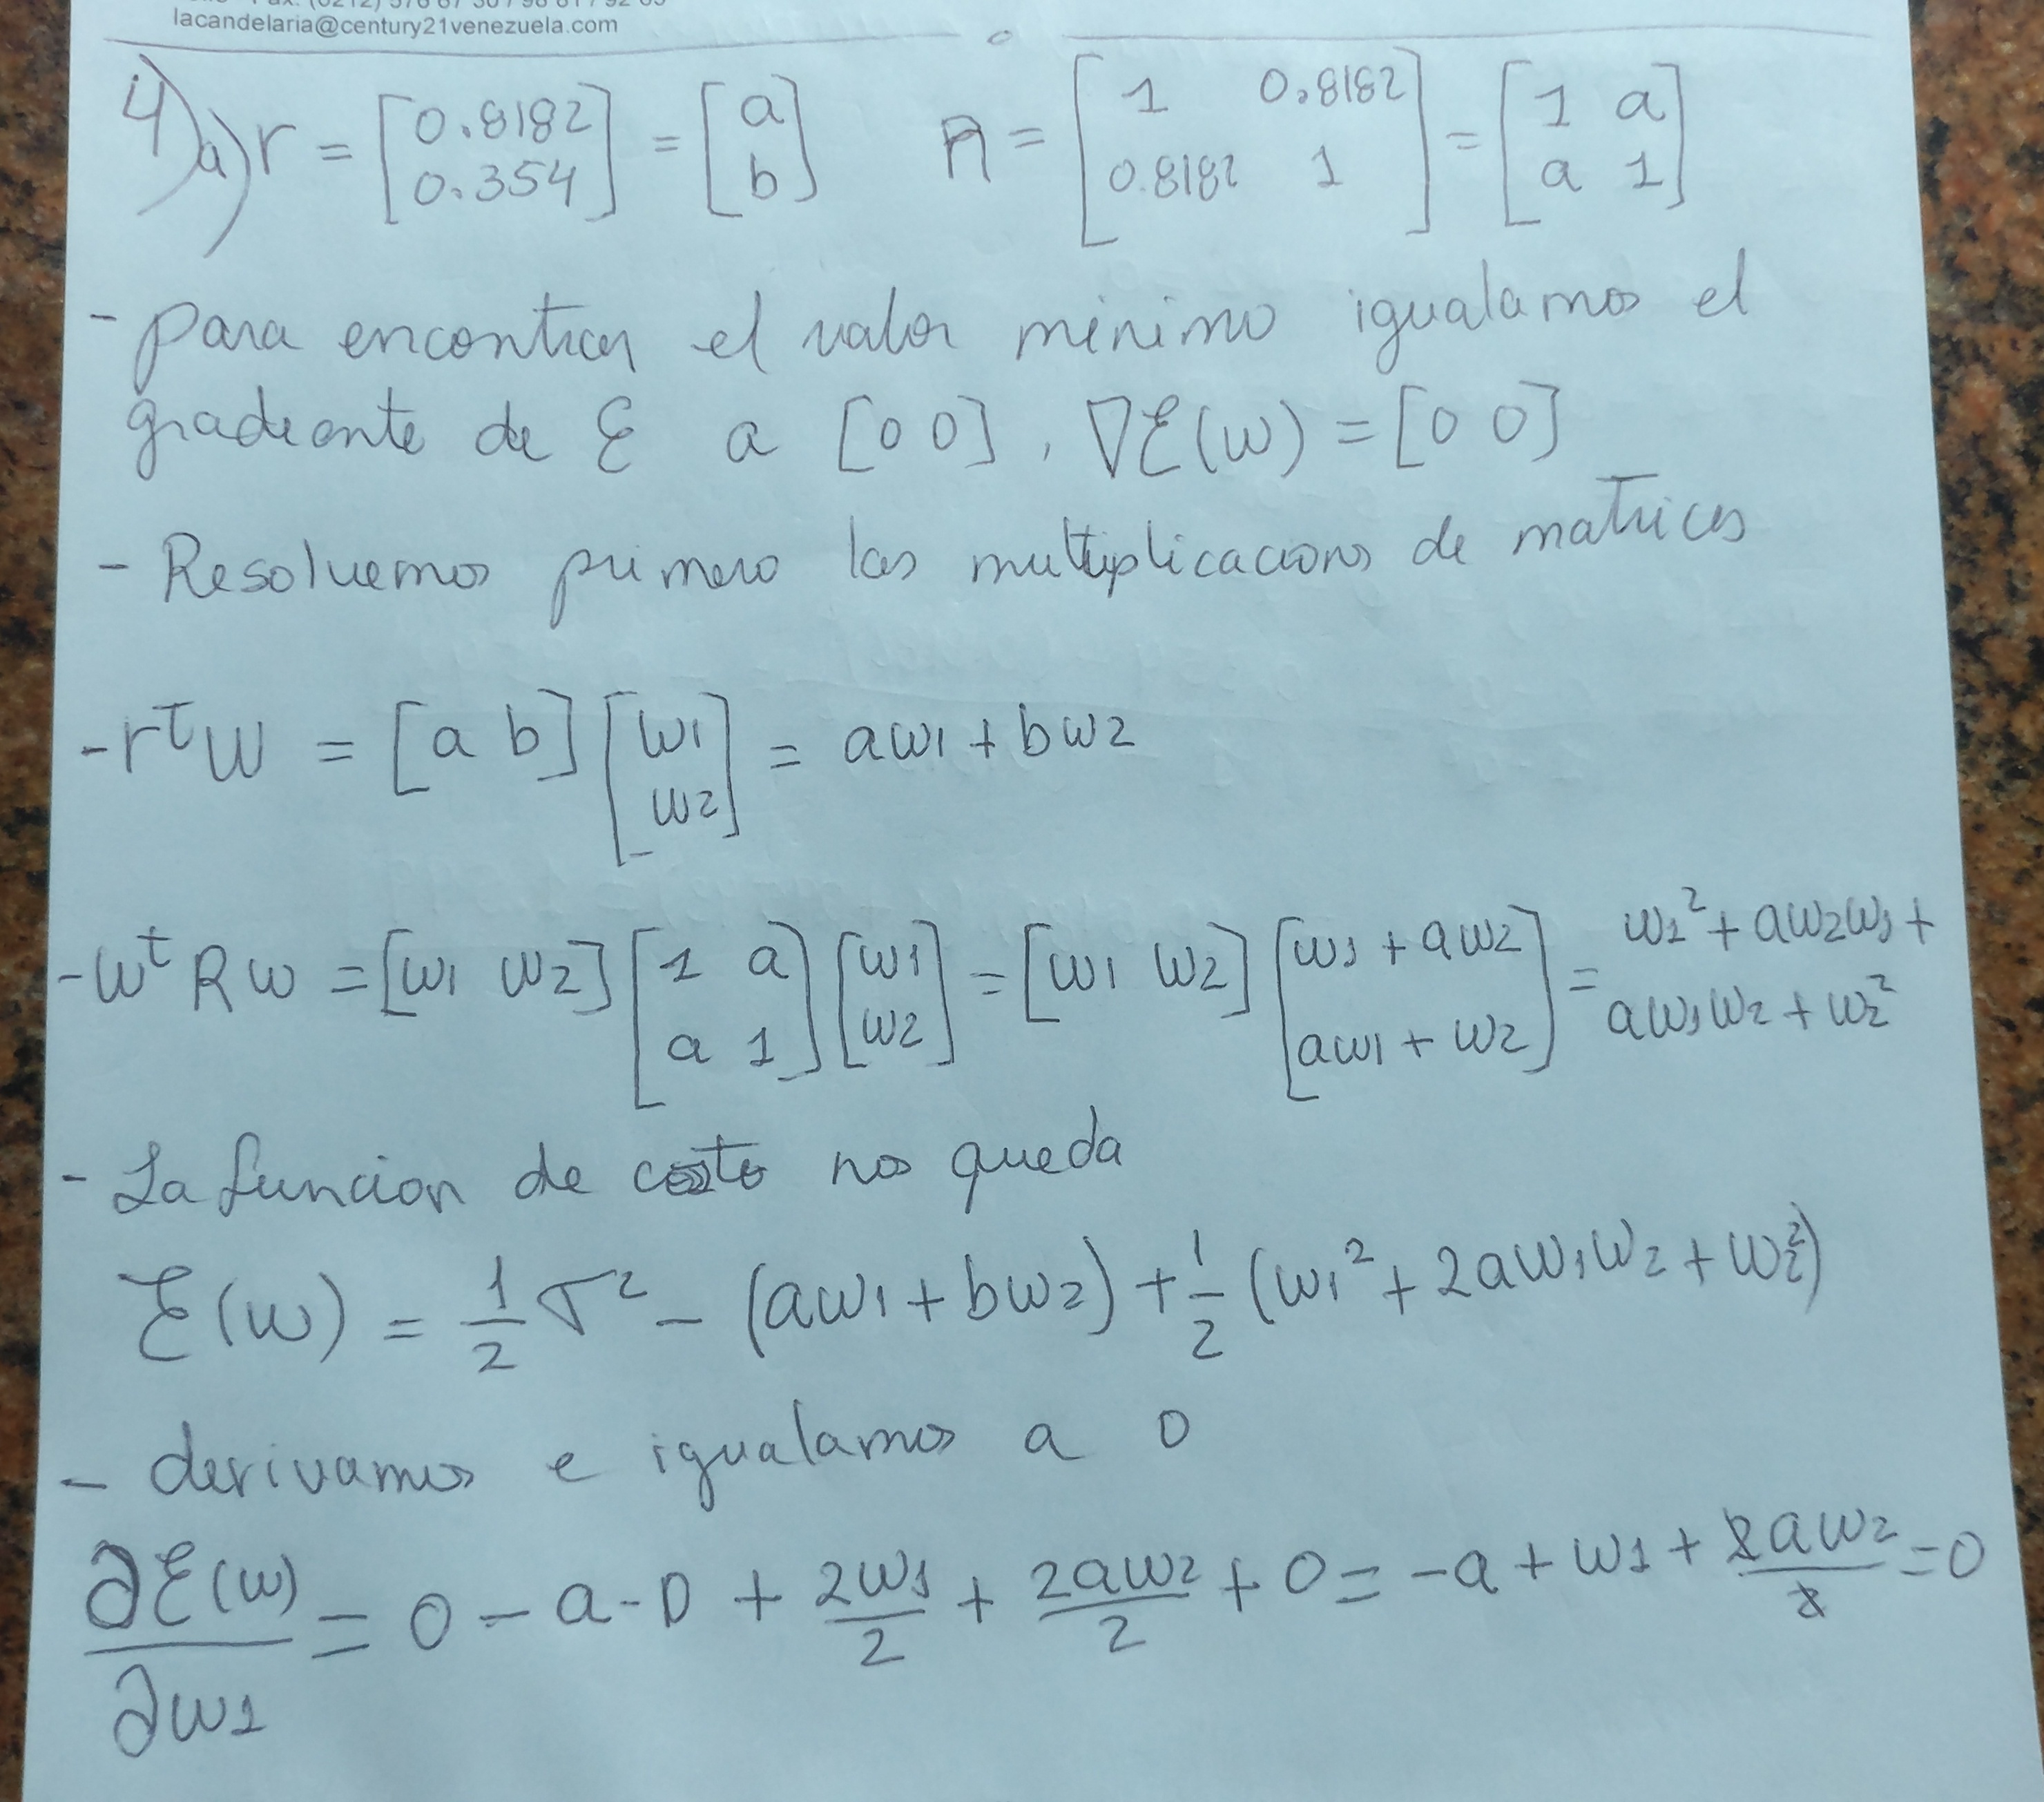 lacandelaria@century21venezuela.com
4) a) r = [0.8182 0.354] = [a b] R = [1 0.8182 0.8182 1] = [1 a a 1]
- para encontrar el valor minimo igualamos el
gradiente de ℰ a [0 0], ∇ℰ(w) = [0 0]
- Resolvemos primero las multiplicacions de matrices
- rᵗw = [a b] [w1 w2] = aw1 + bw2
- wᵗ R w = [w1 w2] [1 a a 1] [w1 w2] = [w1 w2] [w1 + aw2 aw1 + w2] = w1² + aw2w1 + aw1w2 + w2²
- La funcion de costo nos queda
ℰ(w) = 1/2 σ² - (aw1 + bw2) + 1/2 (w1² + 2aw1w2 + w2²)
- derivamos e igualamos a 0
∂ℰ(w)/∂w1 = 0 - a - 0 + 2w1/2 + 2aw2/2 + 0 = -a + w1 + 2aw2/2 = 0